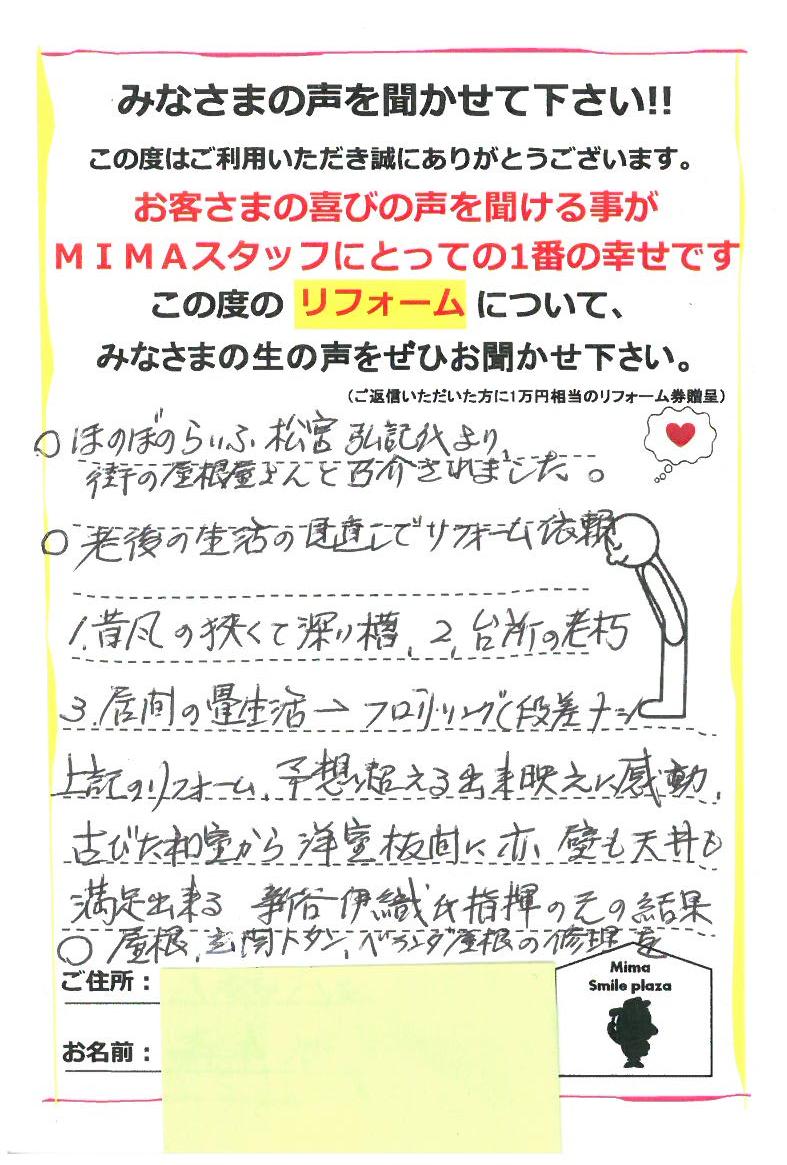 みなさまの声を聞かせて下さい!!
この度はご利用いただき誠にありがとうございます。
お客さまの喜びの声を聞ける事が
ＭＩＭＡスタッフにとっての1番の幸せです
この度の リフォーム について、
みなさまの生の声をぜひお聞かせ下さい。
（ご返信いただいた方に1万円相当のリフォーム券贈呈）
○ ほのぼのらいふ 松宮 弘記氏より
街の屋根屋さんと紹介されました。
○ 老後の生活の見直しでリフォーム依頼
1.昔風の狭くて深い槽、2.台所の老朽
3.居間の畳生活→フローリング(段差ナシ
上記のリフォーム、予想超える出来映えに感動、
古びた和室から洋室板間に亦、壁も天井も
満足出来る 新谷伊織氏指揮の元の結果
○ 屋根、玄関トタン、ベランダ屋根の修理を
ご住所：
お名前：
Mima
Smile plaza